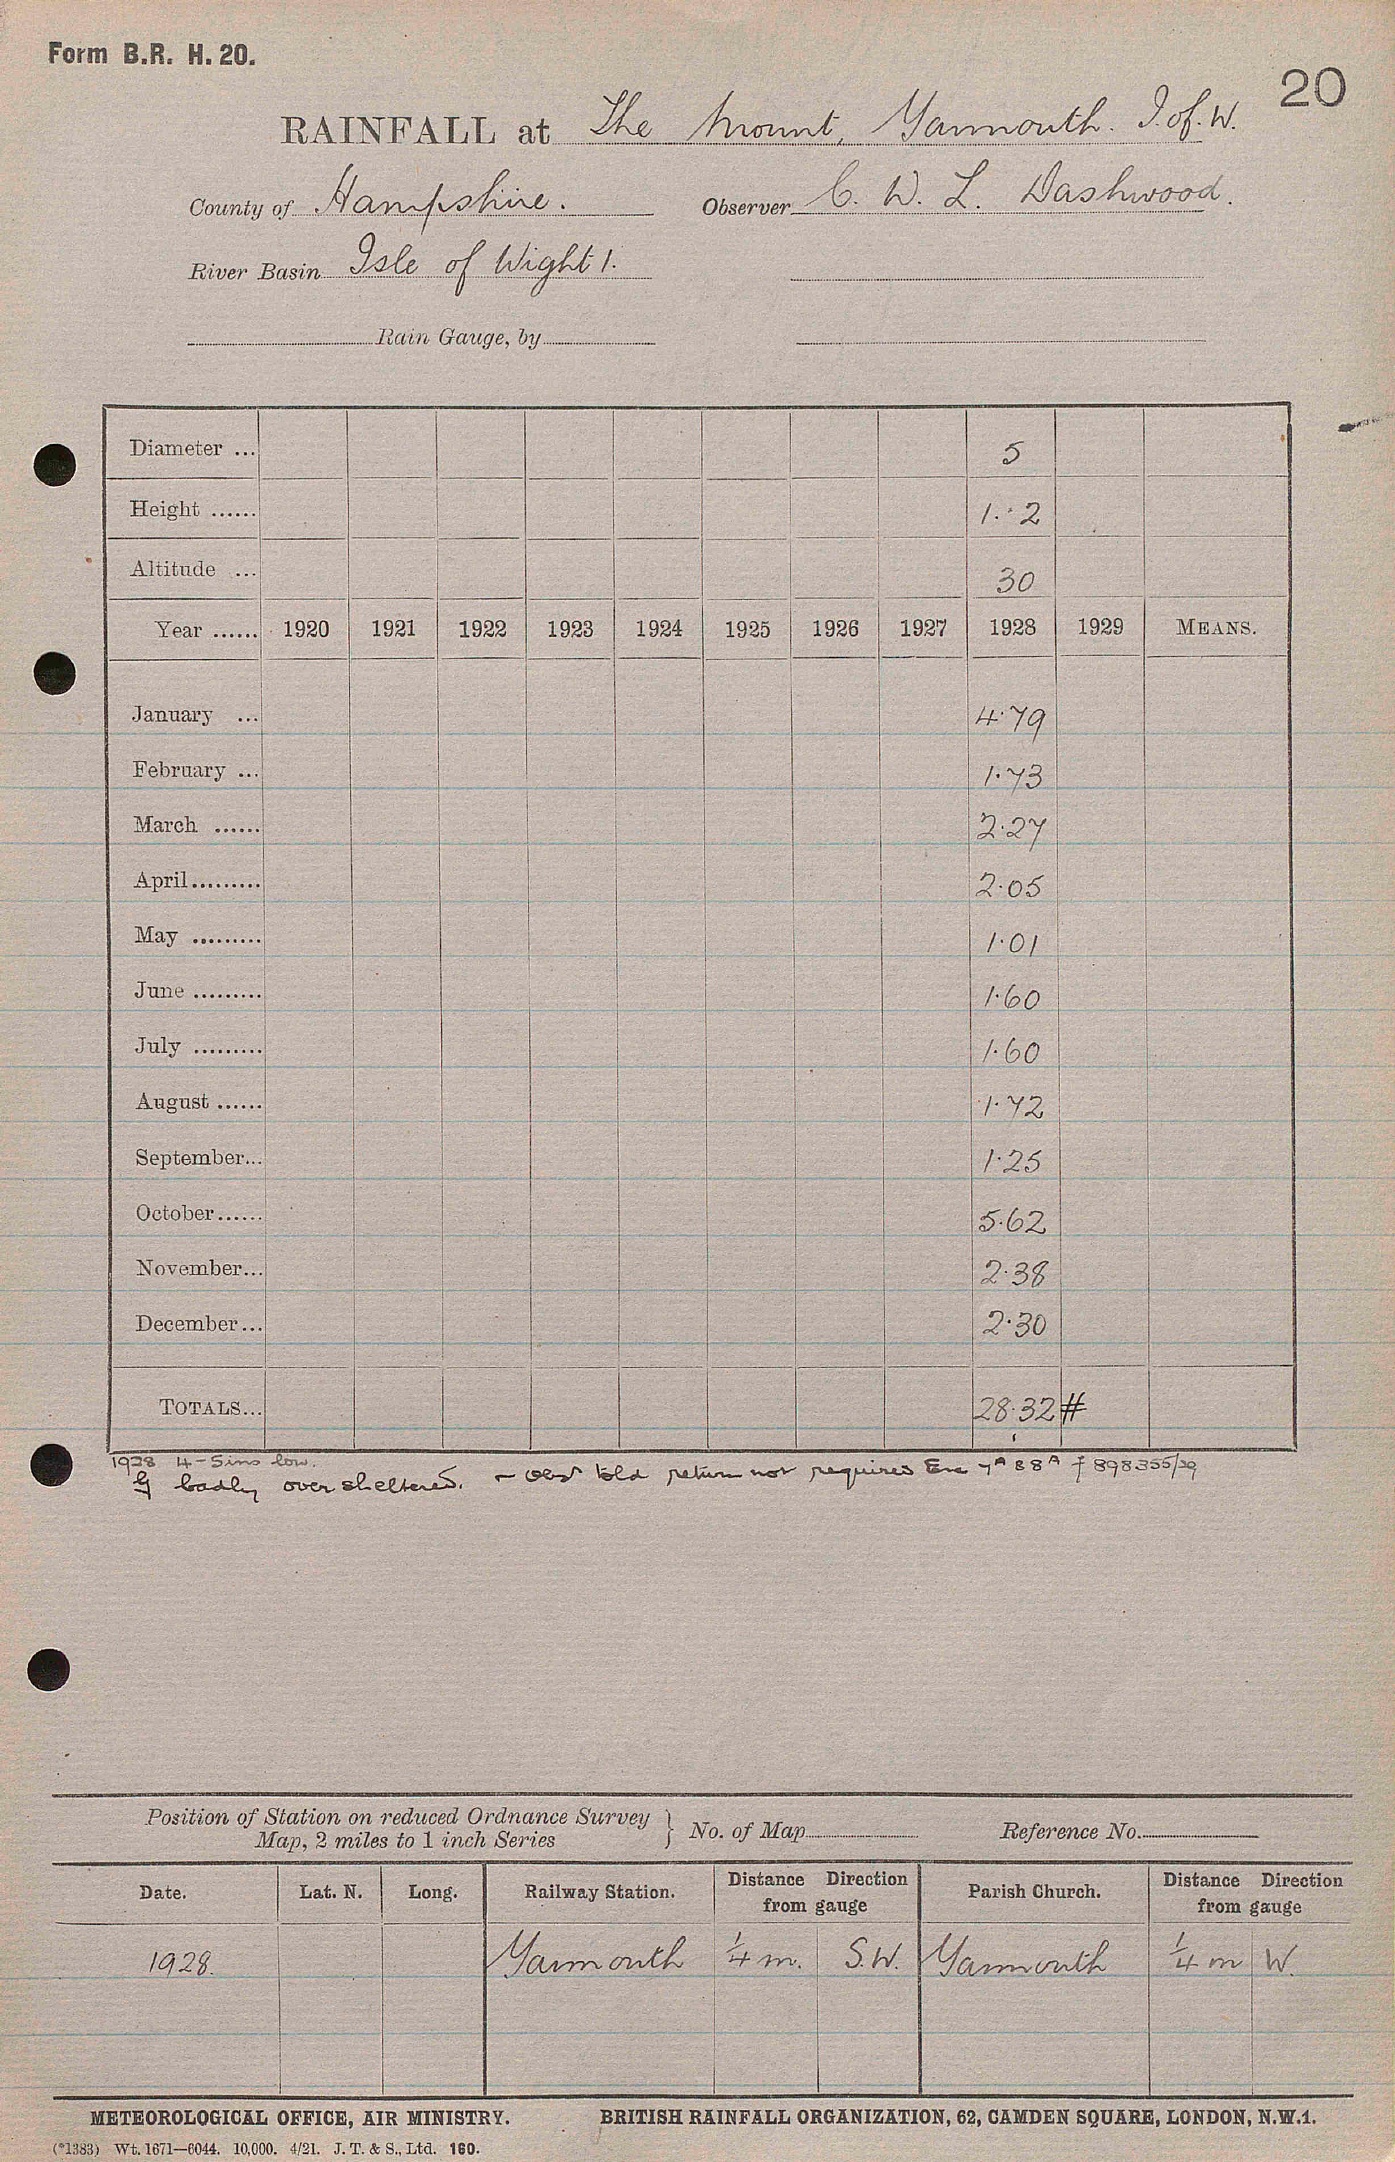 Form B.R. H. 20.
20
RAINFALL at The Mount, Yarmouth. I. of. W.
County of Hampshire. Observer C. W. L. Dashwood.
River Basin Isle of Wight 1.
Rain Gauge, by
Diameter ... 5
Height ...... 1. 2
Altitude ... 30
Year ...... 1920 1921 1922 1923 1924 1925 1926 1927 1928 1929 MEANS.
January ... 4.79
February ... 1.73
March ...... 2.27
April ......... 2.05
May ......... 1.01
June ......... 1.60
July ......... 1.60
August ...... 1.72
September... 1.25
October ...... 5.62
November... 2.38
December... 2.30
TOTALS... 28.32 #
1928 4-5ins low.
G badly over sheltered. - Obsr told return not required 898355/29
Position of Station on reduced Ordnance Survey
Map, 2 miles to 1 inch Series } No. of Map Reference No.
Date. Lat. N. Long. Railway Station. Distance Direction from gauge Parish Church. Distance Direction from gauge
1928. Yarmouth 1/4 m. S.W. Yarmouth 1/4 m W.
METEOROLOGICAL OFFICE, AIR MINISTRY. BRITISH RAINFALL ORGANIZATION, 62, CAMDEN SQUARE, LONDON, N.W.1.
(*1383) Wt. 1671—6044. 10,000. 4/21. J. T. & S., Ltd. 160.